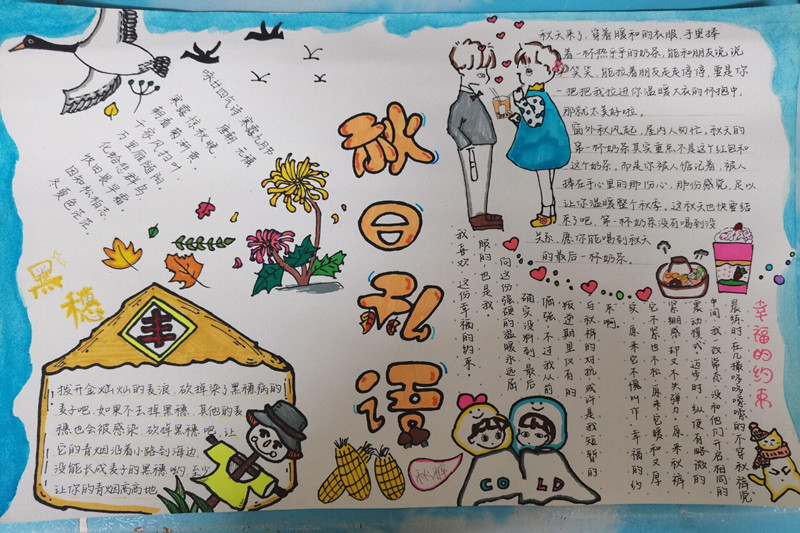 咏廿四气诗 寒露九月节
唐朝 元稹
寒露惊秋晚,
朝看菊渐黄。
千家风扫叶,
万里雁随阳。
化蛤悲群鸟,
收田畏早霜。
因知松柏志,
冬夏色苍苍。
秋日私语
秋天来了,穿着暖和的衣服,手里捧
着一杯热乎乎的奶茶,能和朋友说说
笑笑,能拉着朋友走走停停,要是你
一把把我拉近你温暖大衣的怀抱中,
那就太美好啦。
窗外秋风起,屋内人匆忙,秋天的
第一杯奶茶其实重点不是这个红包和
这个奶茶。而是你被人惦记着,被人
捧在手心里的那份心,那份感觉,足以
让你温暖整个秋季。这秋天也快要结
束了吧,第一杯奶茶没有喝到没
关系,愿你能喝到秋天
的最后一杯奶茶。
黑穗
丰
拨开金灿灿的麦浪,砍掉染了黑穗病的
麦子吧,如果不去掉黑穗,其他的麦
穗也会被感染,砍掉黑穗吧,让
它的青烟沿着小路到海边,
没能长成麦子的黑穗哟,至少
让你的青烟高高地
幸福的约束
晨练时在几缕哆哆嗦嗦的不穿秋裤党
中间,我一改常态,没和他们开启相同的
震动模式,迈步时,纵使有略微的
紧绷感,却又不失弹力,原来秋裤
它不紧也不松,原来它暖和又厚
实,原来它不慢叫作“幸福的约
束”啊。
与秋裤的对抗或许是我短暂的
叛逆期里仅有的
倔强,不过我从前
确实没料到最后
向这份强硬的温暖永远屈
服的,也是我。
我喜欢这份幸福的约束。
COLD